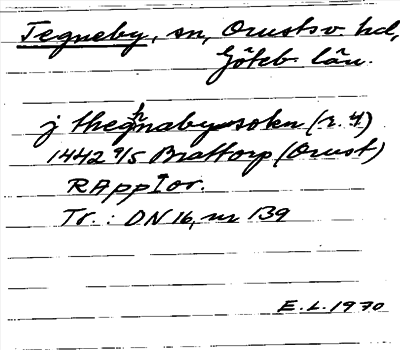 Tegneby, sn, Orusts v. hd,
Göteb. län.
j thegnaby sokn (r. 4)
1442 9/5 Brattorp (Orust)
RAppIor.
Tr.: DN 16, nr 139
E.L. 1970